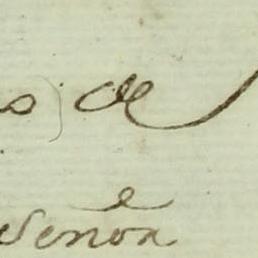 s de
Señora